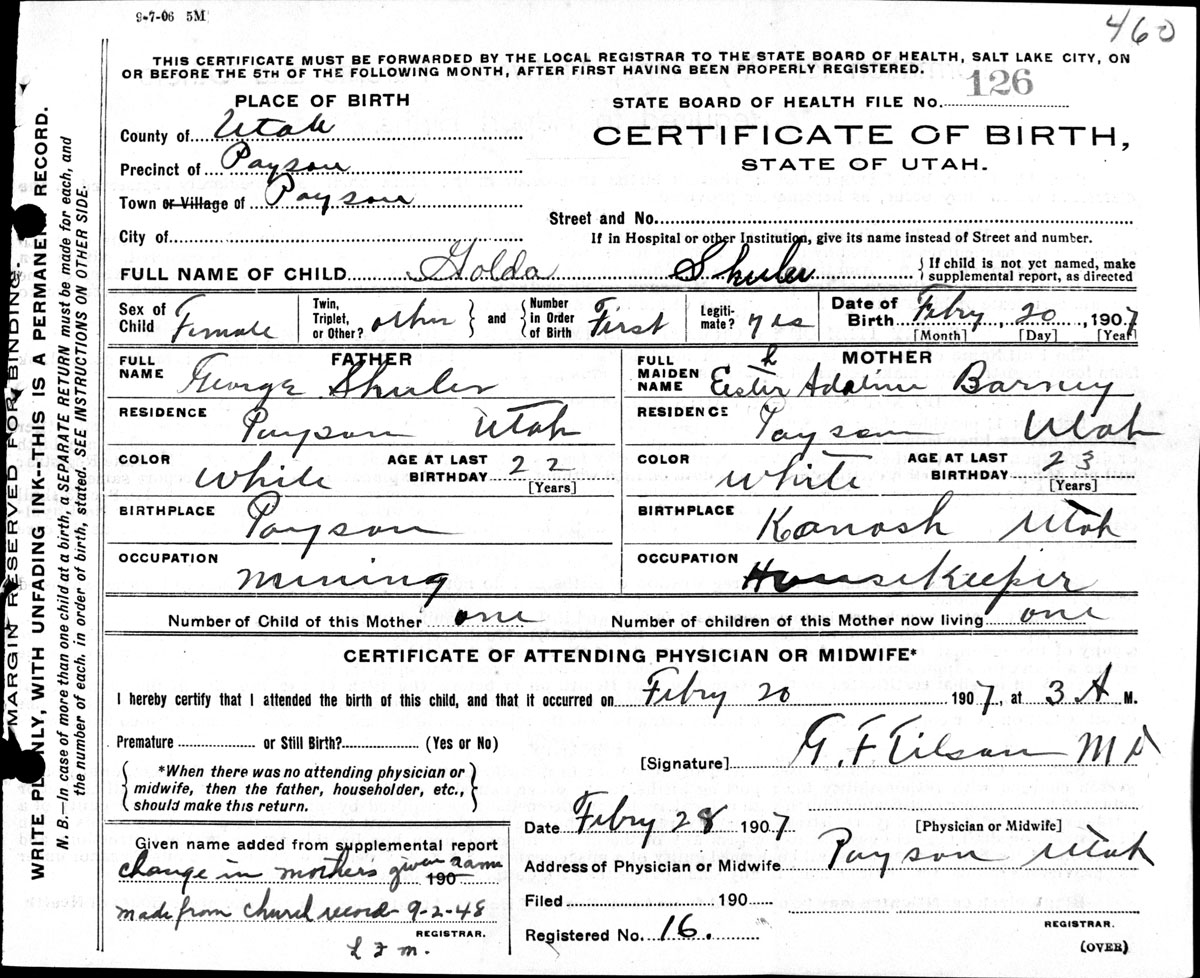 9-7-06 5M
460
THIS CERTIFICATE MUST BE FORWARDED BY THE LOCAL REGISTRAR TO THE STATE BOARD OF HEALTH, SALT LAKE CITY, ON
OR BEFORE THE 5TH OF THE FOLLOWING MONTH, AFTER FIRST HAVING BEEN PROPERLY REGISTERED.
PLACE OF BIRTH
STATE BOARD OF HEALTH FILE No. 126
County of Utah
CERTIFICATE OF BIRTH,
STATE OF UTAH.
Precinct of Payson
Town or Village of Payson
Street and No.
City of
If in Hospital or other Institution, give its name instead of Street and number.
FULL NAME OF CHILD Golda Shuler
{If child is not yet named, make
supplemental report, as directed
Sex of Child Female
Twin, Triplet, or Other? other } and { Number in Order of Birth First
Legiti-mate? yes
Date of Birth Febry, 20, 1907
[Month] [Day] [Year]
FATHER
FULL NAME George Shuler
RESIDENCE Payson Utah
COLOR White
AGE AT LAST BIRTHDAY 22
[Years]
BIRTHPLACE Payson
OCCUPATION Mining
MOTHER
FULL MAIDEN NAME Esther Adaline Barney
RESIDENCE Payson Utah
COLOR White
AGE AT LAST BIRTHDAY 23
[Years]
BIRTHPLACE Kanosh Utah
OCCUPATION Housekeeper
Number of Child of this Mother one
Number of children of this Mother now living one
CERTIFICATE OF ATTENDING PHYSICIAN OR MIDWIFE*
I hereby certify that I attended the birth of this child, and that it occurred on Febry 20 1907, at 3 A M.
Premature or Still Birth? (Yes or No)
[Signature] G. F. Tilson M D
{ *When there was no attending physician or
midwife, then the father, householder, etc.,
should make this return. }
Date Febry 28 1907
[Physician or Midwife]
Given name added from supplemental report
change in mothers given name 190
made from church record 9-2-48
REGISTRAR.
L F M.
Address of Physician or Midwife Payson Utah
Filed 190
REGISTRAR.
Registered No. 16.
(OVER)
MARGIN RESERVED FOR BINDING.
WRITE PLAINLY, WITH UNFADING INK--THIS IS A PERMANENT RECORD.
N. B.—In case of more than one child at a birth, a SEPARATE RETURN must be made for each, and
the number of each, in order of birth, stated. SEE INSTRUCTIONS ON OTHER SIDE.